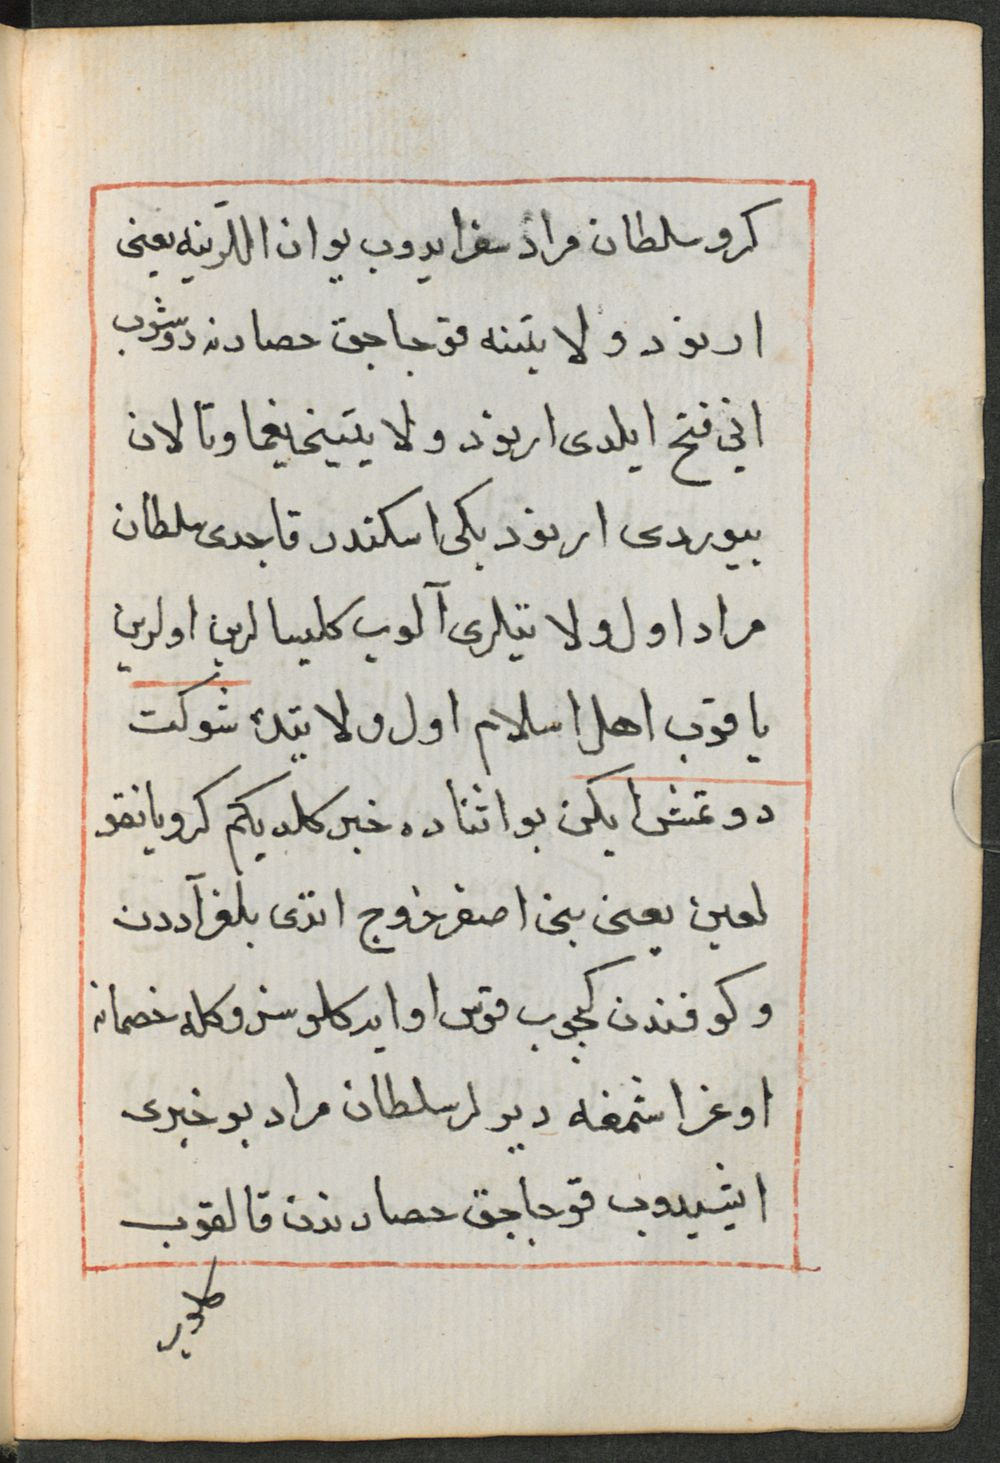 كرو سلطان مراد سفر ايدوب يوان اللرينه يعنى
ارنود ولايتنه قوجاجق حصارنه دوشوب
انى فتح ايلدى ارنود ولايتينى يغما و تالان
بيوردى ارنود بكى اسكندر قاچدى سلطان
مراد اول ولايتلرى آلوب كليسالرين اولرين
ياقوب اهل اسلام اول ولايتده شوكت
دوتمش ايكن بو اثناده خبر كلديكم كرو يانقو
لعين يعنى بنى اصفر خروج اتدى بلغراددن
و كوفندن كچوب قوس اوايه كلوسز و كله خصمانه
اوغراشمغه ديرلر سلطان مراد بو خبرى
ايشيدوب قوجاجق حصارندن قالقوب
كلدير